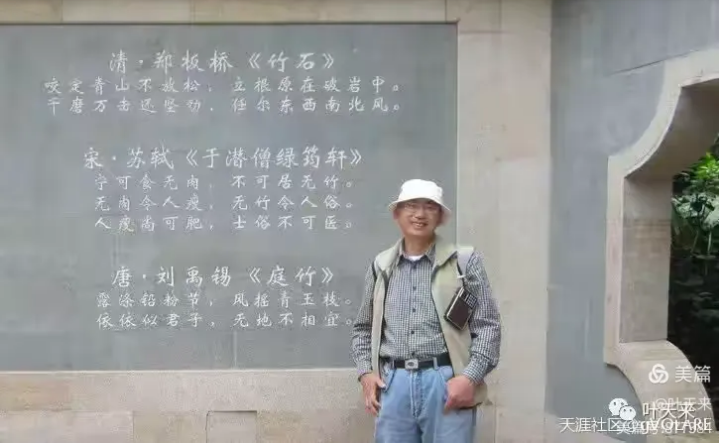 清·郑板桥《竹石》
咬定青山不放松，立根原在破岩中。
千磨万击还坚劲，任尔东西南北风。
宋·苏轼《于潜僧绿筠轩》
宁可食无肉，不可居无竹。
无肉令人瘦，无竹令人俗。
人瘦尚可肥，士俗不可医。
唐·刘禹锡《庭竹》
露涤铅粉节，风摇青玉枝。
依依似君子，无地不相宜。
美篇
@叶天来
叶天来
天涯社区@gVOLARE